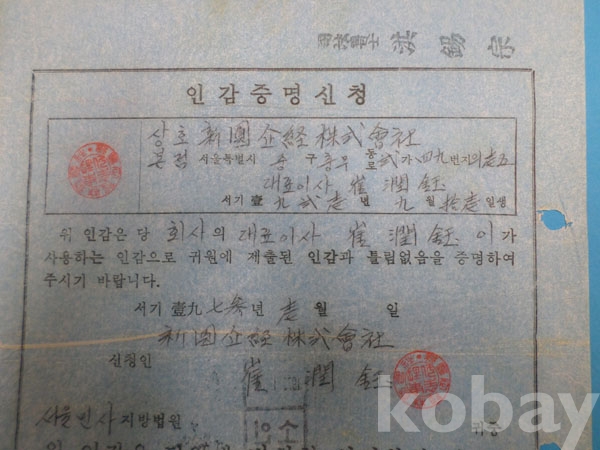 인감증명신청
상호 新國企経株式會社
본점 서울특별시 중구 충무로 弐가 四九번지의 壱五
대표이사 崔潤鈺
서기 壹九弐壱年 九월 拾壱일생
위 인감은 당 회사의 대표이사 崔潤鈺이가
사용하는 인감으로 귀원에 제출된 인감과 틀림없음을 증명하여
주시기 바랍니다.
서기 壹九七年 壱월 일
新國企経株式會社
신청인 崔潤鈺
서울민사지방법원 귀중
kobay